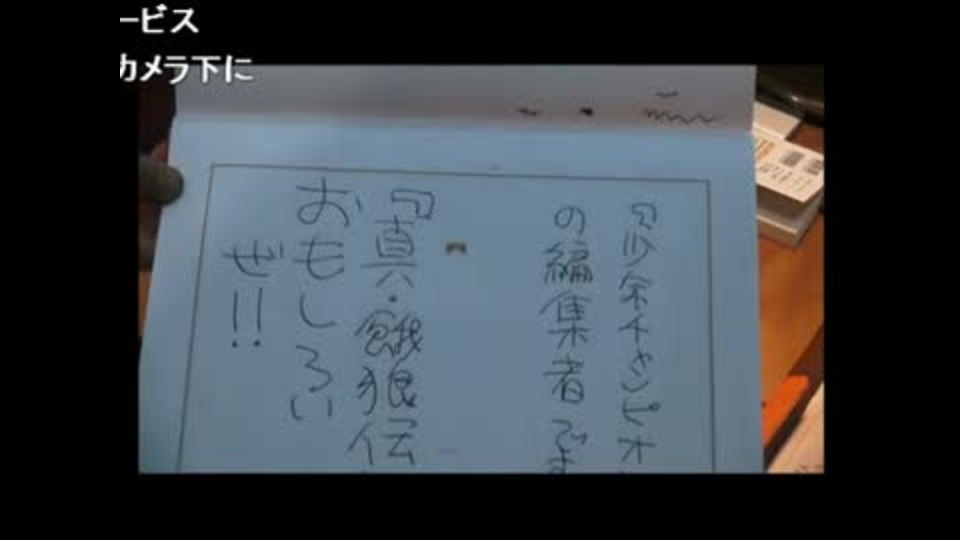 ービス
カメラ下に
『少年チャンピオ
の編集者でま
『真・餓狼伝
おもしろい
ぜ!!